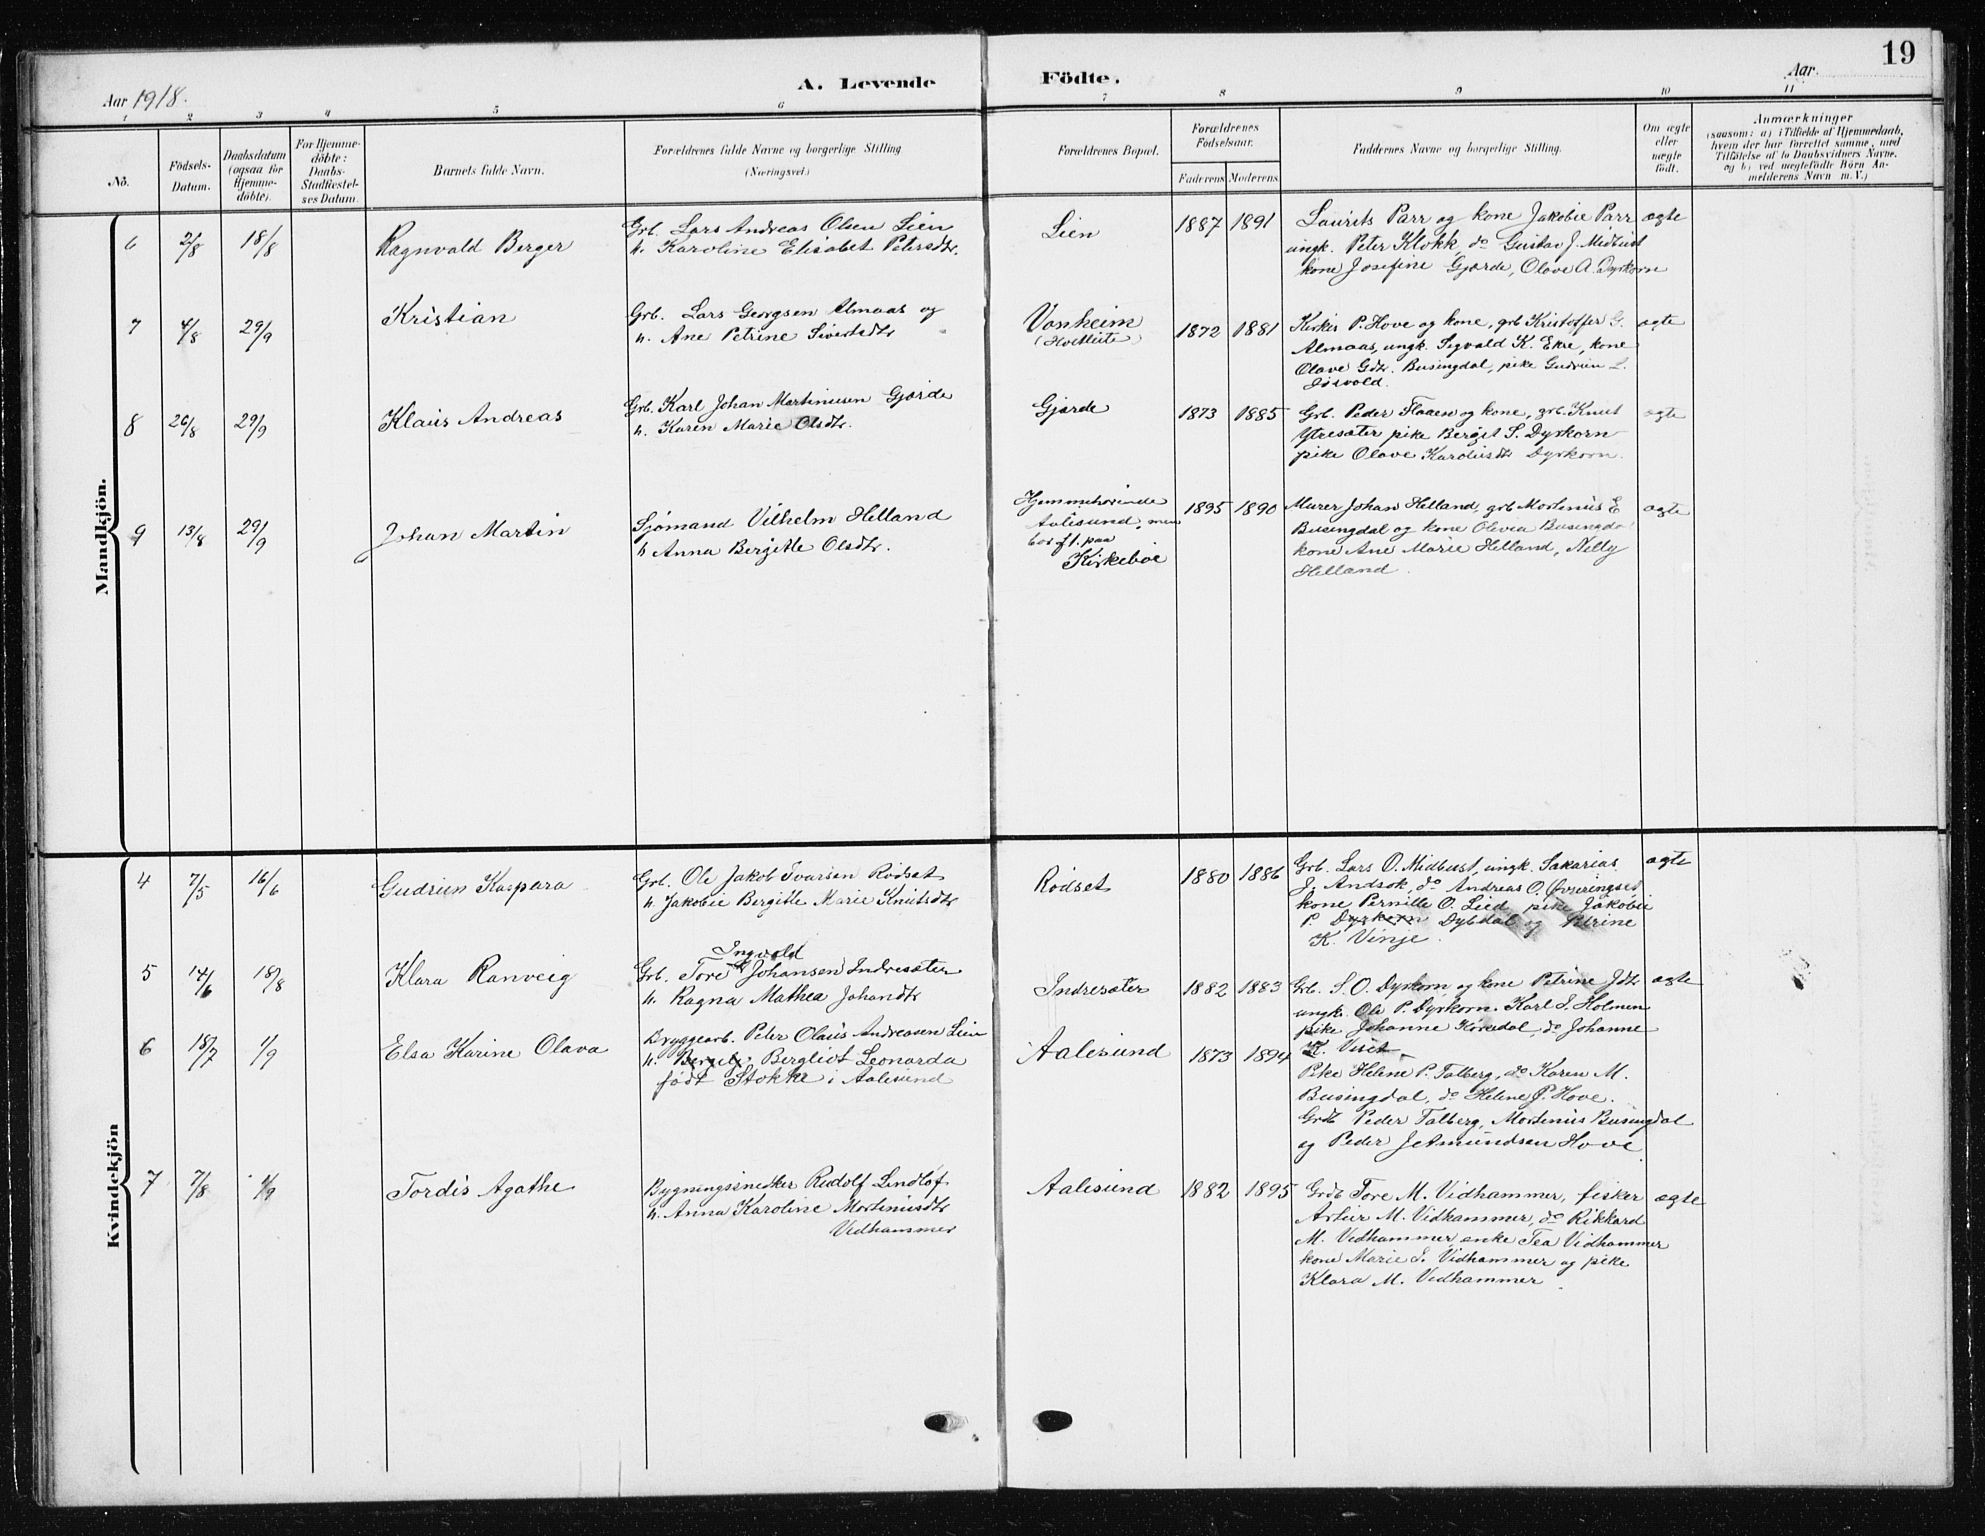 19
A. Levende Födte.
Aar 1918.
Aar
1 2 3 4 5 6 7 8 9 10 11
No.
Födsels-
Datum.
Daabsdatum
(ogsaa for
Hjemme-
döbte).
For Hjemme-
döbte:
Daabs-
Stadfæstel-
ses Datum.
Barnets fulde Navn.
Forældrenes fulde Navne og borgerlige Stilling
(Næringsvei.)
Forældrenes Bopæl.
Forældrenes
Födselsaar.
Faderens Moderens
Faddernes Navne og borgerlige Stilling.
Om ægte
eller
uægte
födt.
Anmærkninger
(saasom: a) i Tilfælde af Hjemmedaab,
hvem der har forrettet samme, med
Tilføielse af to Daabsvidners Navne,
og b) ved uægtefödte Börn An-
melderens Navn m. V.)
Mandkjön.
6 2/8 18/8 Ragnvald Berger
Grb. Lars Andreas Olsen Lien
h. Karoline Elisabet Petersdtr.
Lien 1887 1891
Laurits Parr og kone Jakobie Parr
ungk. Peter Klokk, do Gustav J. Midtust
kone Josefine Gjærde, Olave A. Dyrkorn
ægte
7 4/8 29/9 Kristian
Grb. Lars Georgsen Almaas og
h. Ane Petrine Sivertsdtr
Vonheim 1872 1881
Kirkes. P. Hove og kone, grb Kristoffer G.
Almaas, ungk. Sigvald K. Ekre, kone
Olave Gdtr. Busingdal, pike Gudrun L.
ægte
8 26/8 29/9 Klaus Andreas
Grb. Karl Johan Martinusen Gjærde
h. Karen Marie Olsdtr.
Gjærde 1873 1885
Grb. Peder Flaaen og kone, grb. Knut
Ytresæter pike Bergit S. Dyrkorn
pike Olave Karolusdtr Dyrkorn.
ægte
9 13/8 29/9 Johan Martin
Sjømand Vilhelm Helland
h Anna Bergitte Olsdtr.
Hjemmehørende
Aalesund, men
bor f. t. paa
Kirkebøe
1895 1890
Murer Johan Helland, grb Mortenius E
Busingdal og kone Olivia Busingda
kone Ane Marie Helland, Nelly
Helland.
ægte
Kvindekjön
4 7/5 16/6 Gudrun Kaspara
Grb. Ole Jakob Ivarsen Rødset
h. Jakobie Bergitte Marie Knutsdtr
Rødset 1880 1886
Grb. Lars O. Midtust, ungk. Sakarias
J. Andsok, do Andreas O. Øvreringset
kone Pernille O. Lied pike Jakobie
P. Dyrkorn Dybdal og Petrine
K. Vinje.
ægte
5 14/6 18/8 Klara Ranveig
Ingvald
Grb. Tore G Johansen Indresæter
h. Ragna Mathea Johandtr
Indresæter 1882 1883
Grb. S. O. Dyrkorn og kone Petrine Jdtr
ungk. Ole P. Dyrkorn. Karl S. Holmen
pike Johanne Korsdal, do Johanne
K. Viset
ægte
6 18/7 1/9 Elsa Karine Olava
Bryggearb. Peter Olaus Andreasen Lien
h. Bergit Bergliot Leonarda
født Stokke i Aalesund
Aalesund 1873 1894
Pike Helene P. Talberg, do Karen M.
Busingdal, do Helene P. Hove.
Grdb Peder Talberg, Mortenius Busingdal
og Peder Jetmundsen Hove
7 7/8 1/9 Tordis Agathe
Bygningssnedker Rudolf Lindløf
h. Anna Karoline Mortinusdtr
Vedhammer
Aalesund 1882 1895
Grdb Tore M. Vidhammer, fisker
Artur M. Vidhammer, do Rikkard
M. Vidhammer, enke Tea Vidhammer
kone Marie S. Vidhammer og pike
Klara M. Vedhammer.
ægte